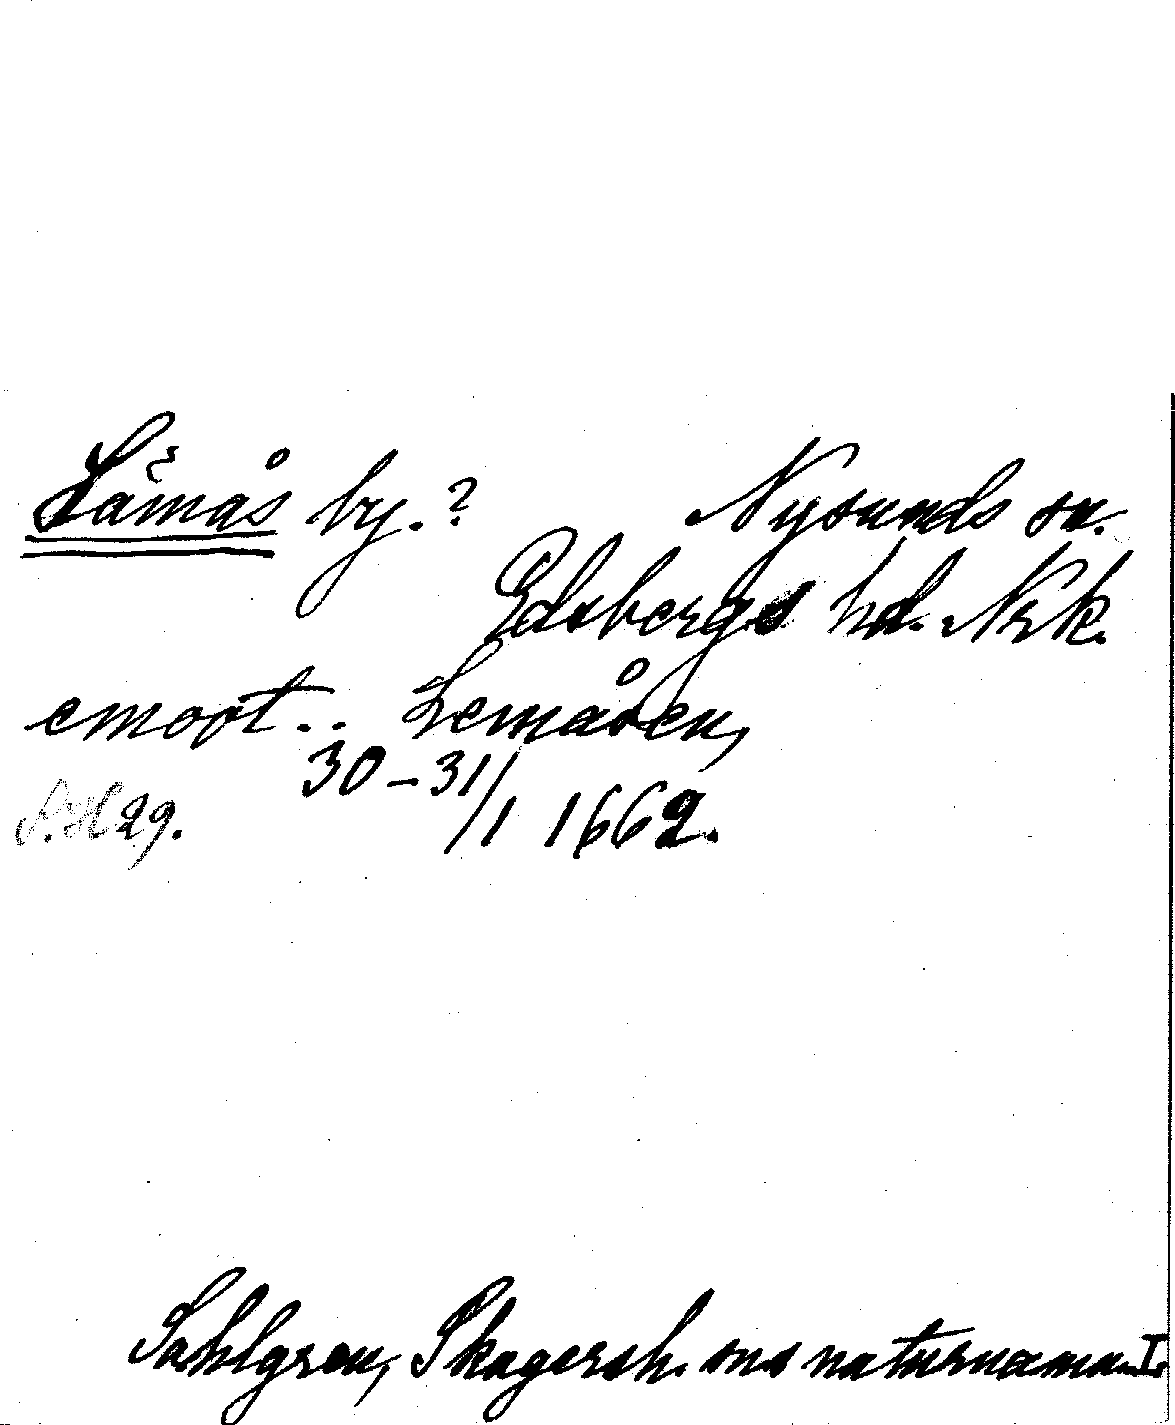 Låmås by.? Nysunds sn.
Edsbergs hd. Nrk.
emoot.. Lemåsen,
30-31/1 1662.
S.H 29.
Sahlgren, Skagersh. sns naturnamn. I.